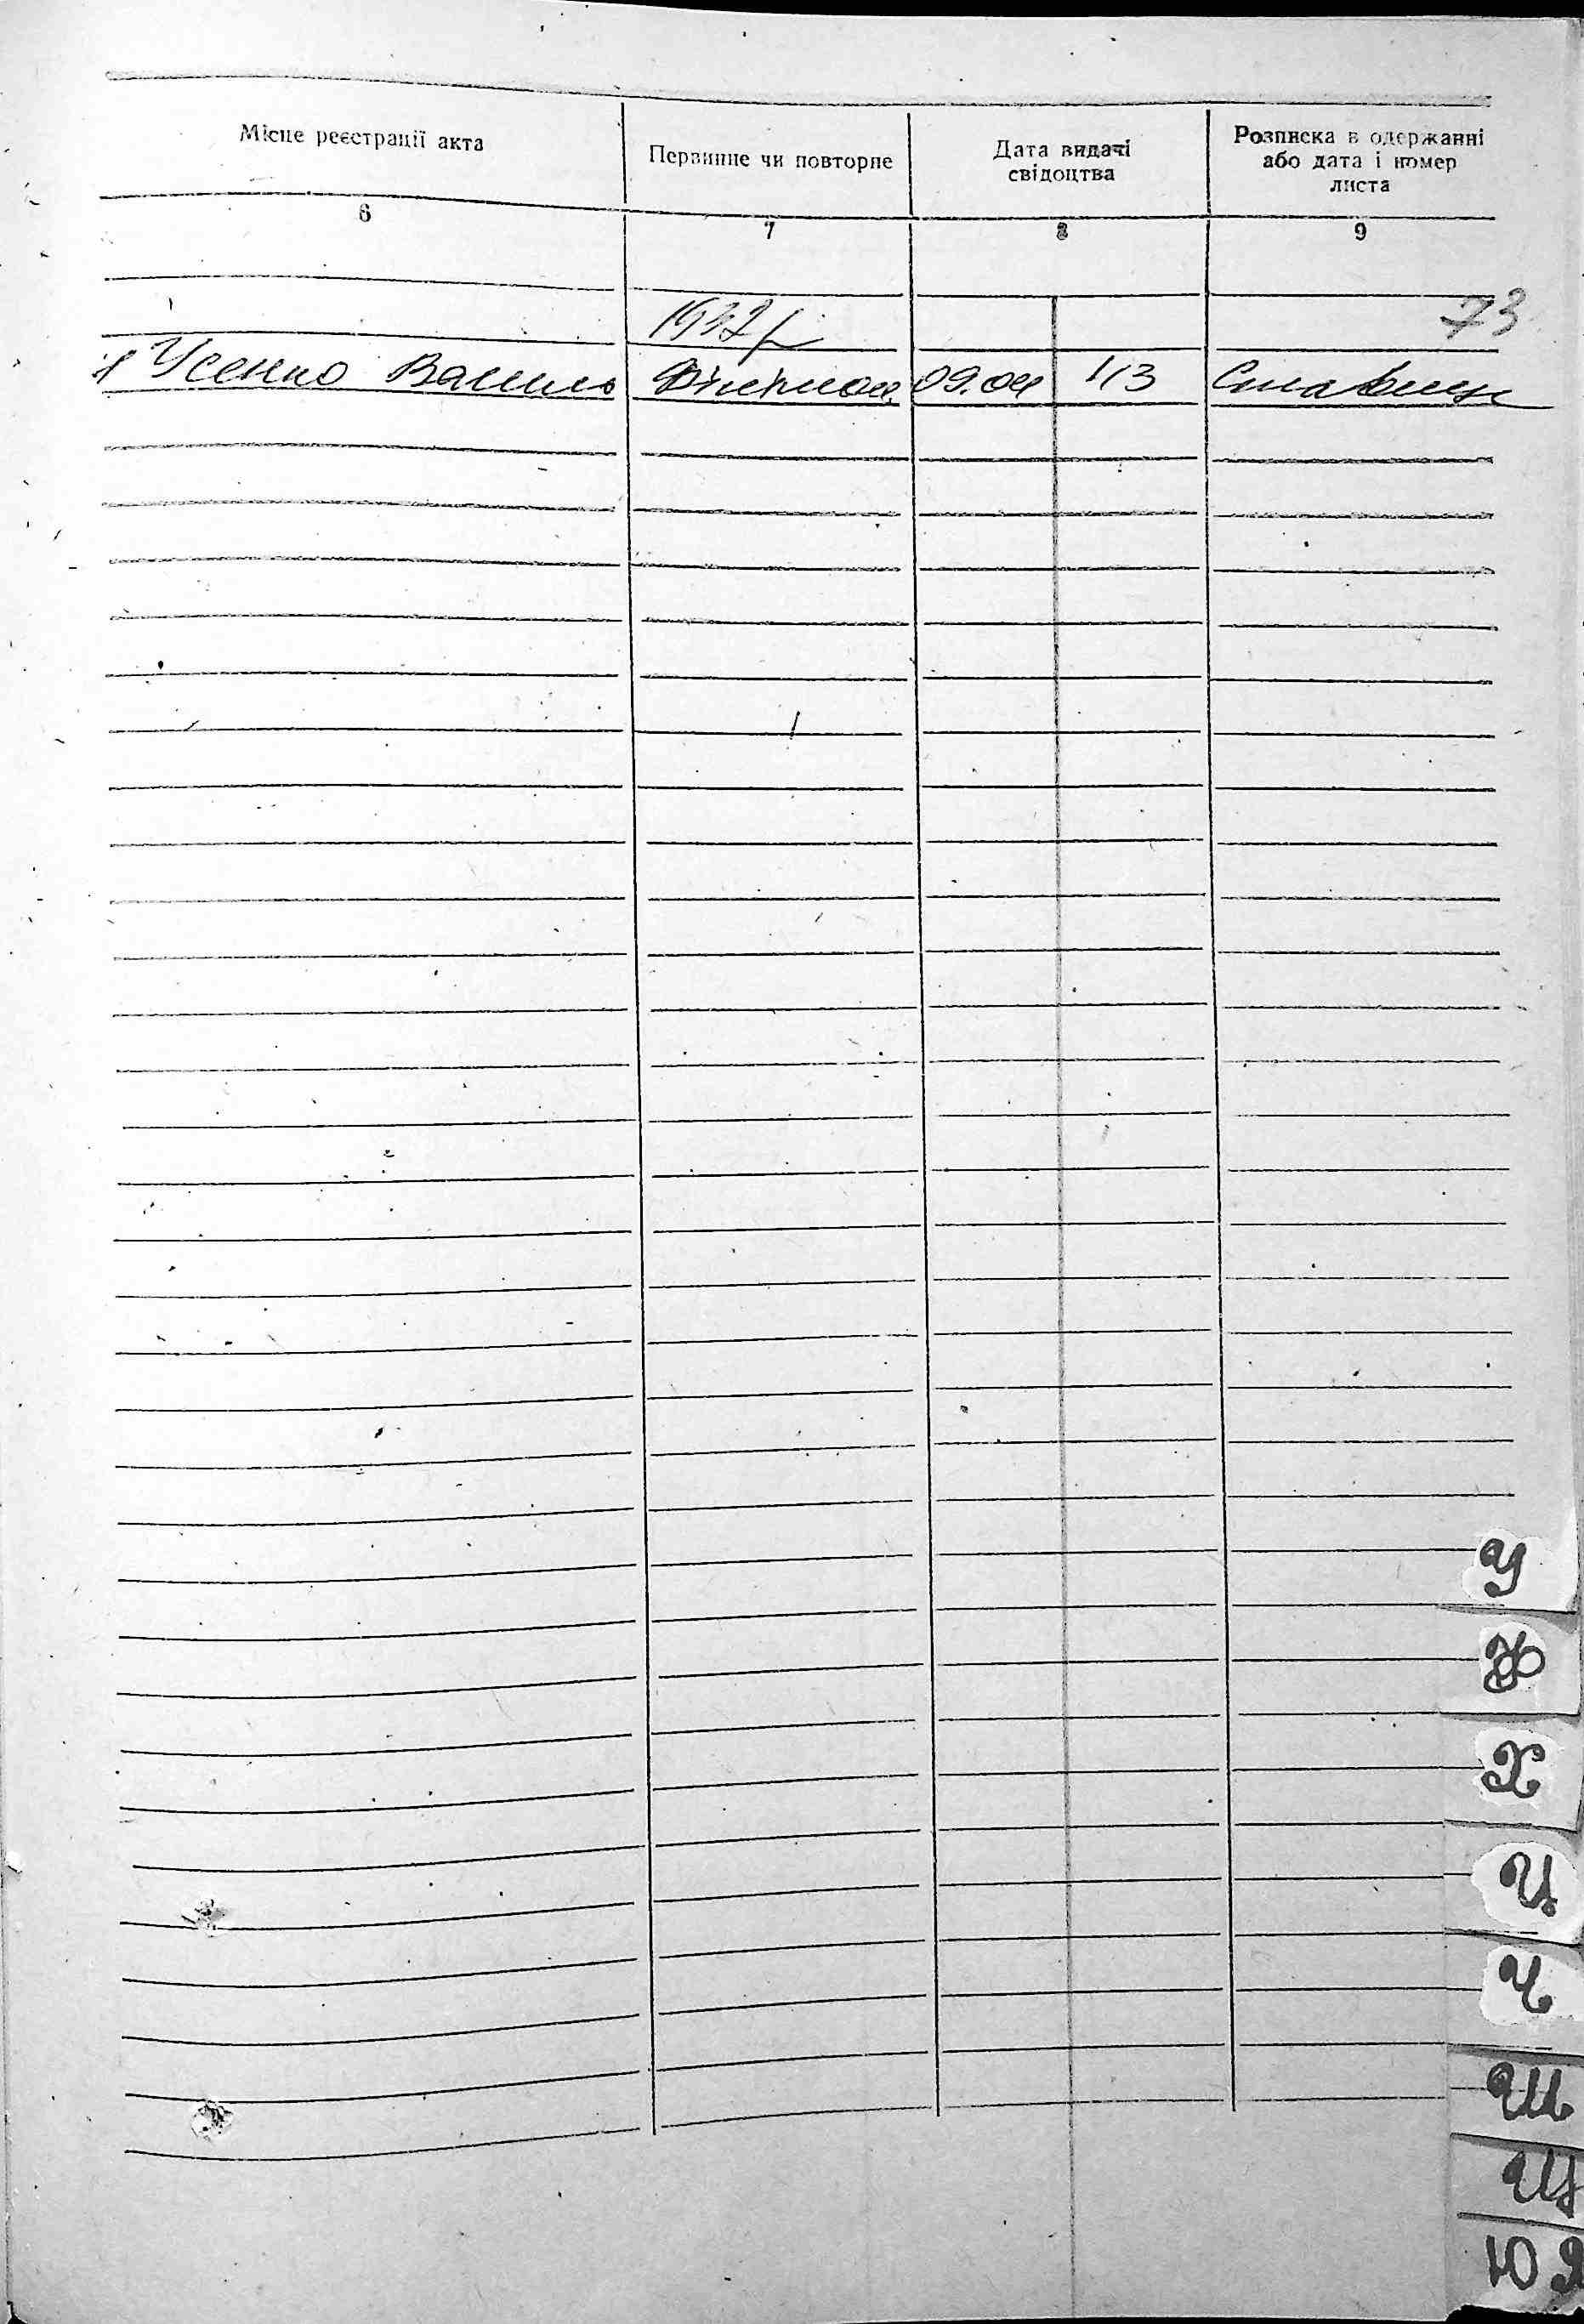 Місце реєстрації акта
Первинне чи повторне
Дата видачі
свідоцтва
Розписка в одержанні
або дата і номер
листа
6 7 8 9
1937р 73
1 Усенко Василь 09.04 113
У
Ф
Х
Ц
Ч
Ш
Щ
Ю Я